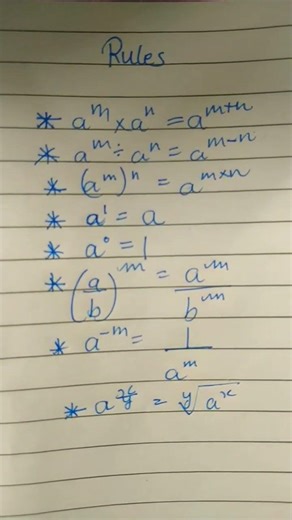 Rules
* a^m × a^n = a^(m+n)
* a^m ÷ a^n = a^(m-n)
* (a^m)^n = a^(m×n)
* a^1 = a
* a^0 = 1
* (a/b)^m = a^m/b^m
* a^(-m) = 1/a^m
* a^(x/y) = ʸ√(a^x)